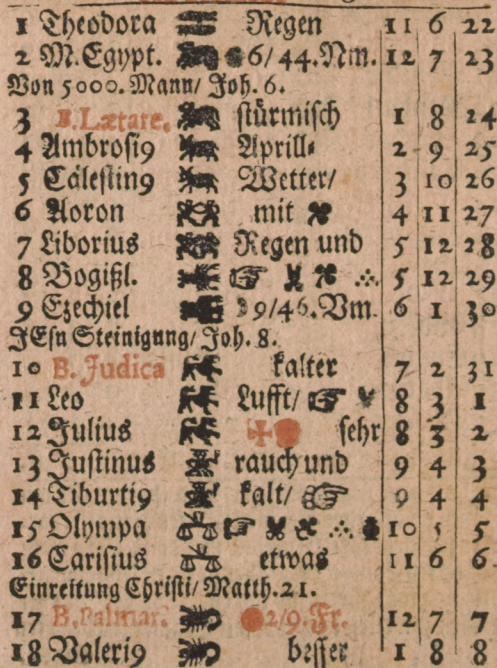 1 Theodora Regen 11 6 22
2 M. Egypt. 6/44. Nm. 12 7 23
Von 5000. Mann/ Joh. 6.
3 Lætare. stürmisch 1 8 24
4 Ambrosi9 Aprill⸗ 2 9 25
5 Cälestin9 Wetter/ 3 10 26
6 Aaron mit 4 11 27
7 Liborius Regen und 5 12 28
8 Bogißl. 5 12 29
9 Ezechiel 9/46. Vm. 6 1 30
JEsu Steinigung/ Joh. 8.
10 B. Judica kalter 7 2 31
11 Leo Lufft/ 8 3 1
12 Julius sehr 8 3 2
13 Justinus rauch und 9 4 3
14 Tiburti9 kalt/ 9 4 4
15 Olympa 10 5 5
16 Carisius etwas 11 6 6
Einreitung Christi/ Matth. 21.
17 B. Palmar. 2/9. Fr. 12 7 7
18 Valeri9 besser 1 8 8